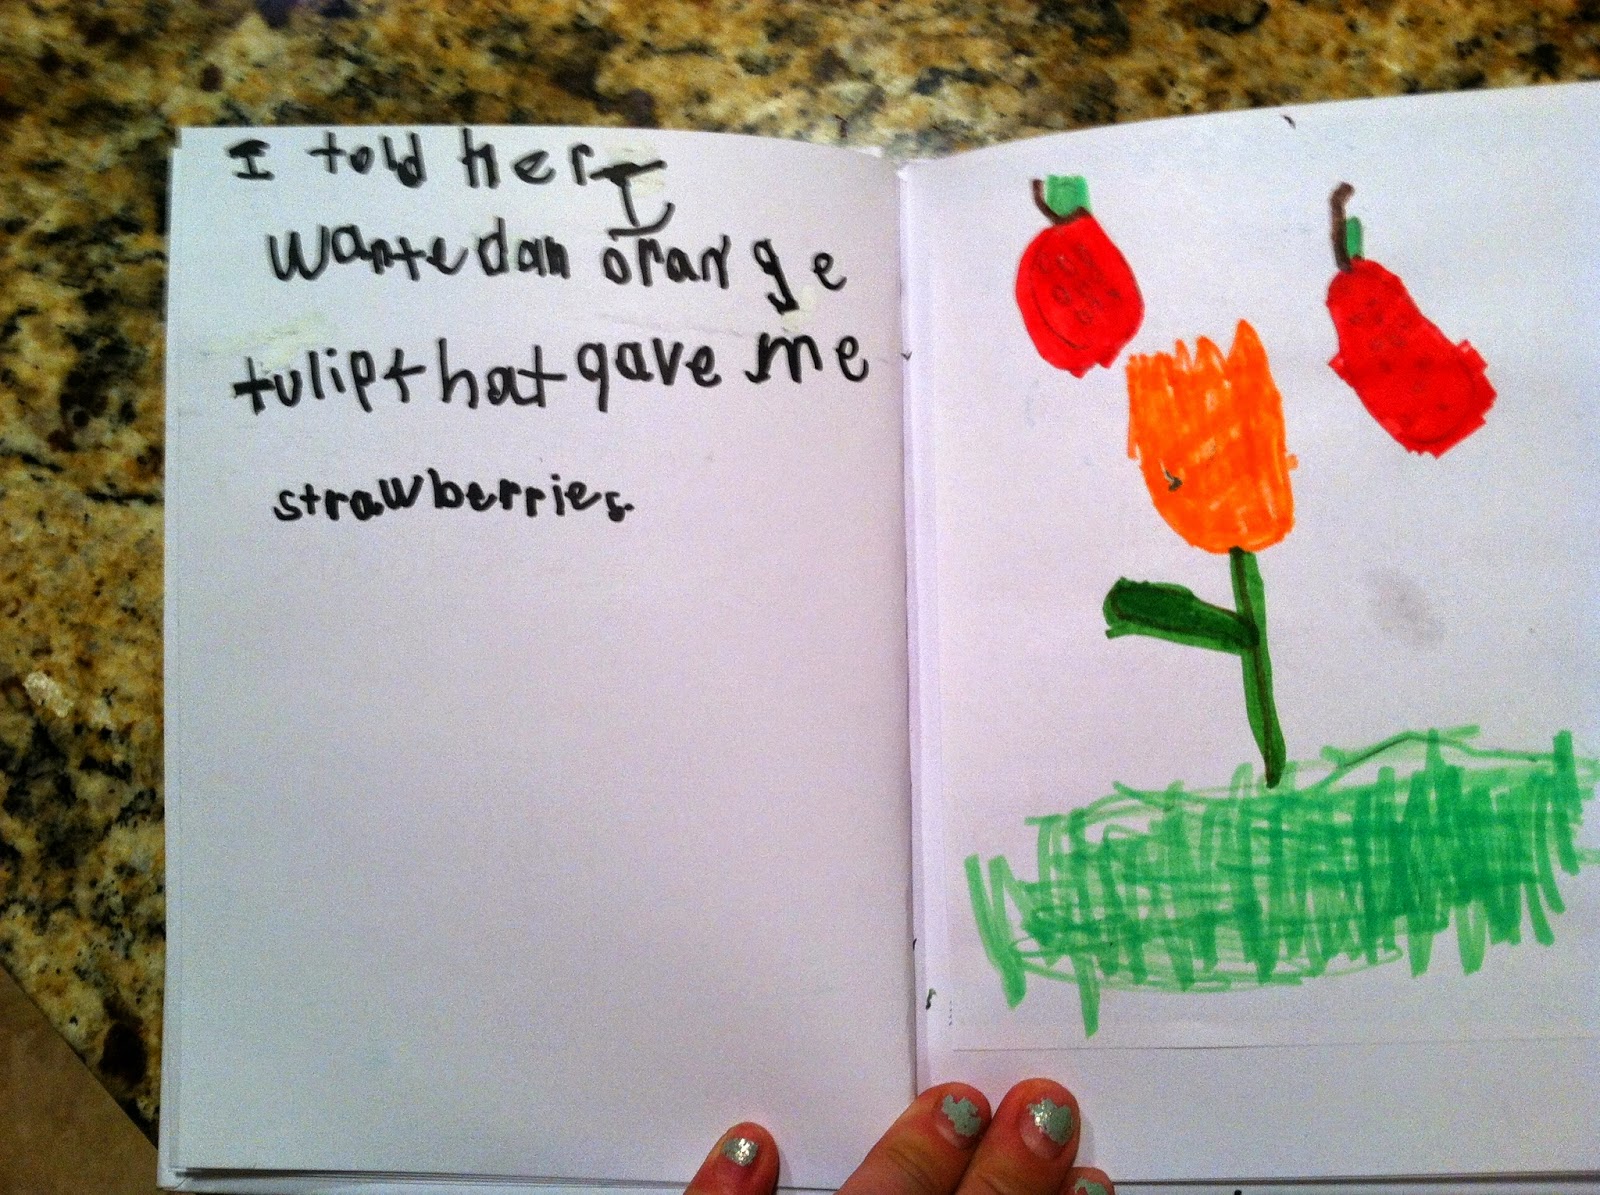 I told her I
wanted an orange
tulip that gave me
strawberries.